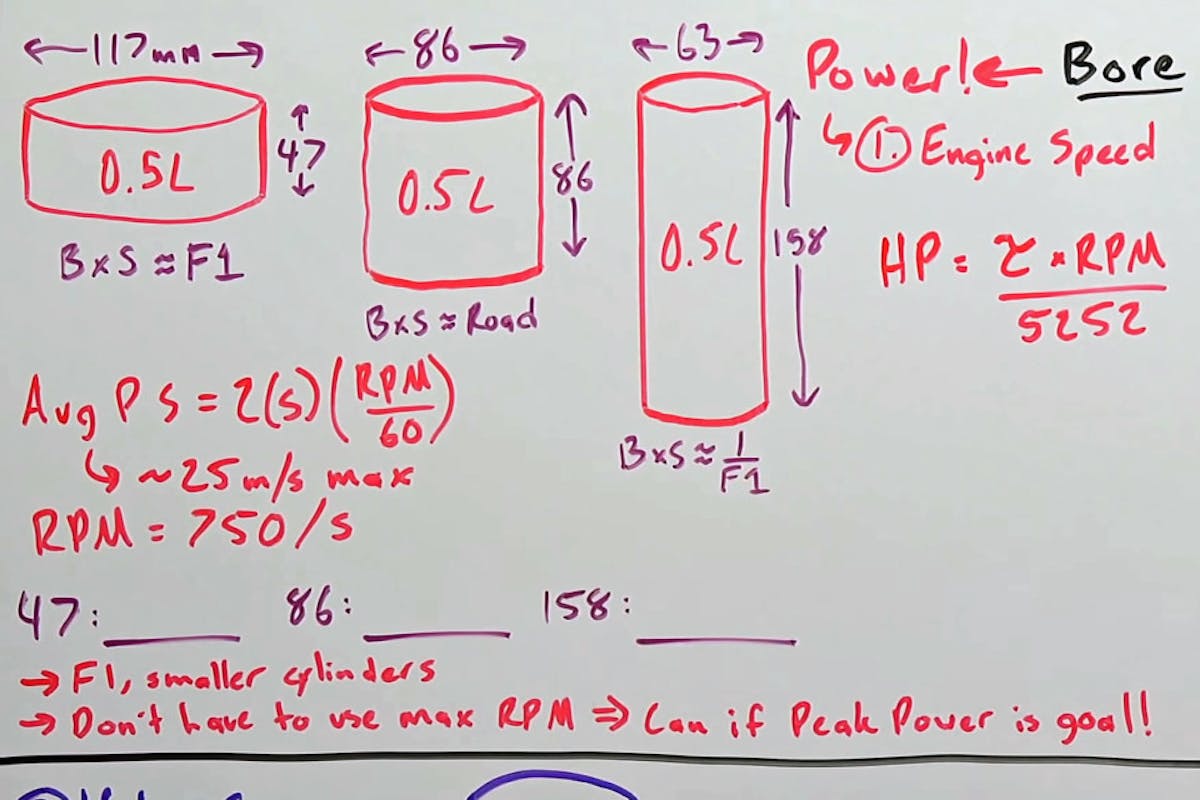 ←117mm→
←86→
←63→
Power!← Bore
↳ ①. Engine Speed
0.5L
47
0.5L
86
0.5L
158
HP = τ * RPM / 5252
B×S≈F1
B×S≈Road
B×S≈ 1/F1
Avg P S = 2(s)(RPM/60)
↳ ~25m/s max
RPM = 750/s
47: ____ 86: ____ 158: ____
→ F1, smaller cylinders
→ Don't have to use max RPM ⇒ Can if Peak Power is goal!